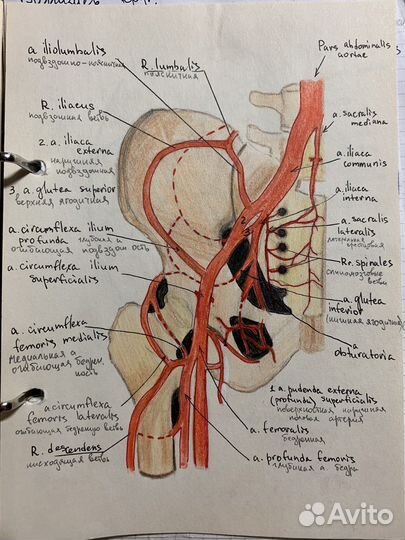 a. iliolumbalis
подвздошно-поясничн
R. lumbalis
поясничная
Pars abdominalis
aortae
R. iliacus
подвздошная ветвь
2. a. iliaca
externa
наружная
подвздошная
3. a. glutea superior
верхняя ягодичная
a. circumflexa ilium
profunda глубокая а
огибающая подвздош. кость
a. circumflexa ilium
superficialis
a. circumflexa
femoris medialis
медиальная а
огибающая бедрен.
кость
a circumflexa
femoris lateralis
огибающая бедренную ветвь
R. descendens
нисходящая ветвь
a. sacralis
mediana
a. iliaca
communis
a. iliaca
interna
a. sacralis
lateralis
латеральная
крестцовая
Rr. spinales
спинномозговые
ветви
a. glutea
inferior
(нижняя ягодичная)
a.
obturatoria
a. pudenda externa
(profunda) superficialis
поверхностная наружная
половая артерия
a. femoralis
бедренная
a. profunda femoris
глубокая а. бедра
Avito